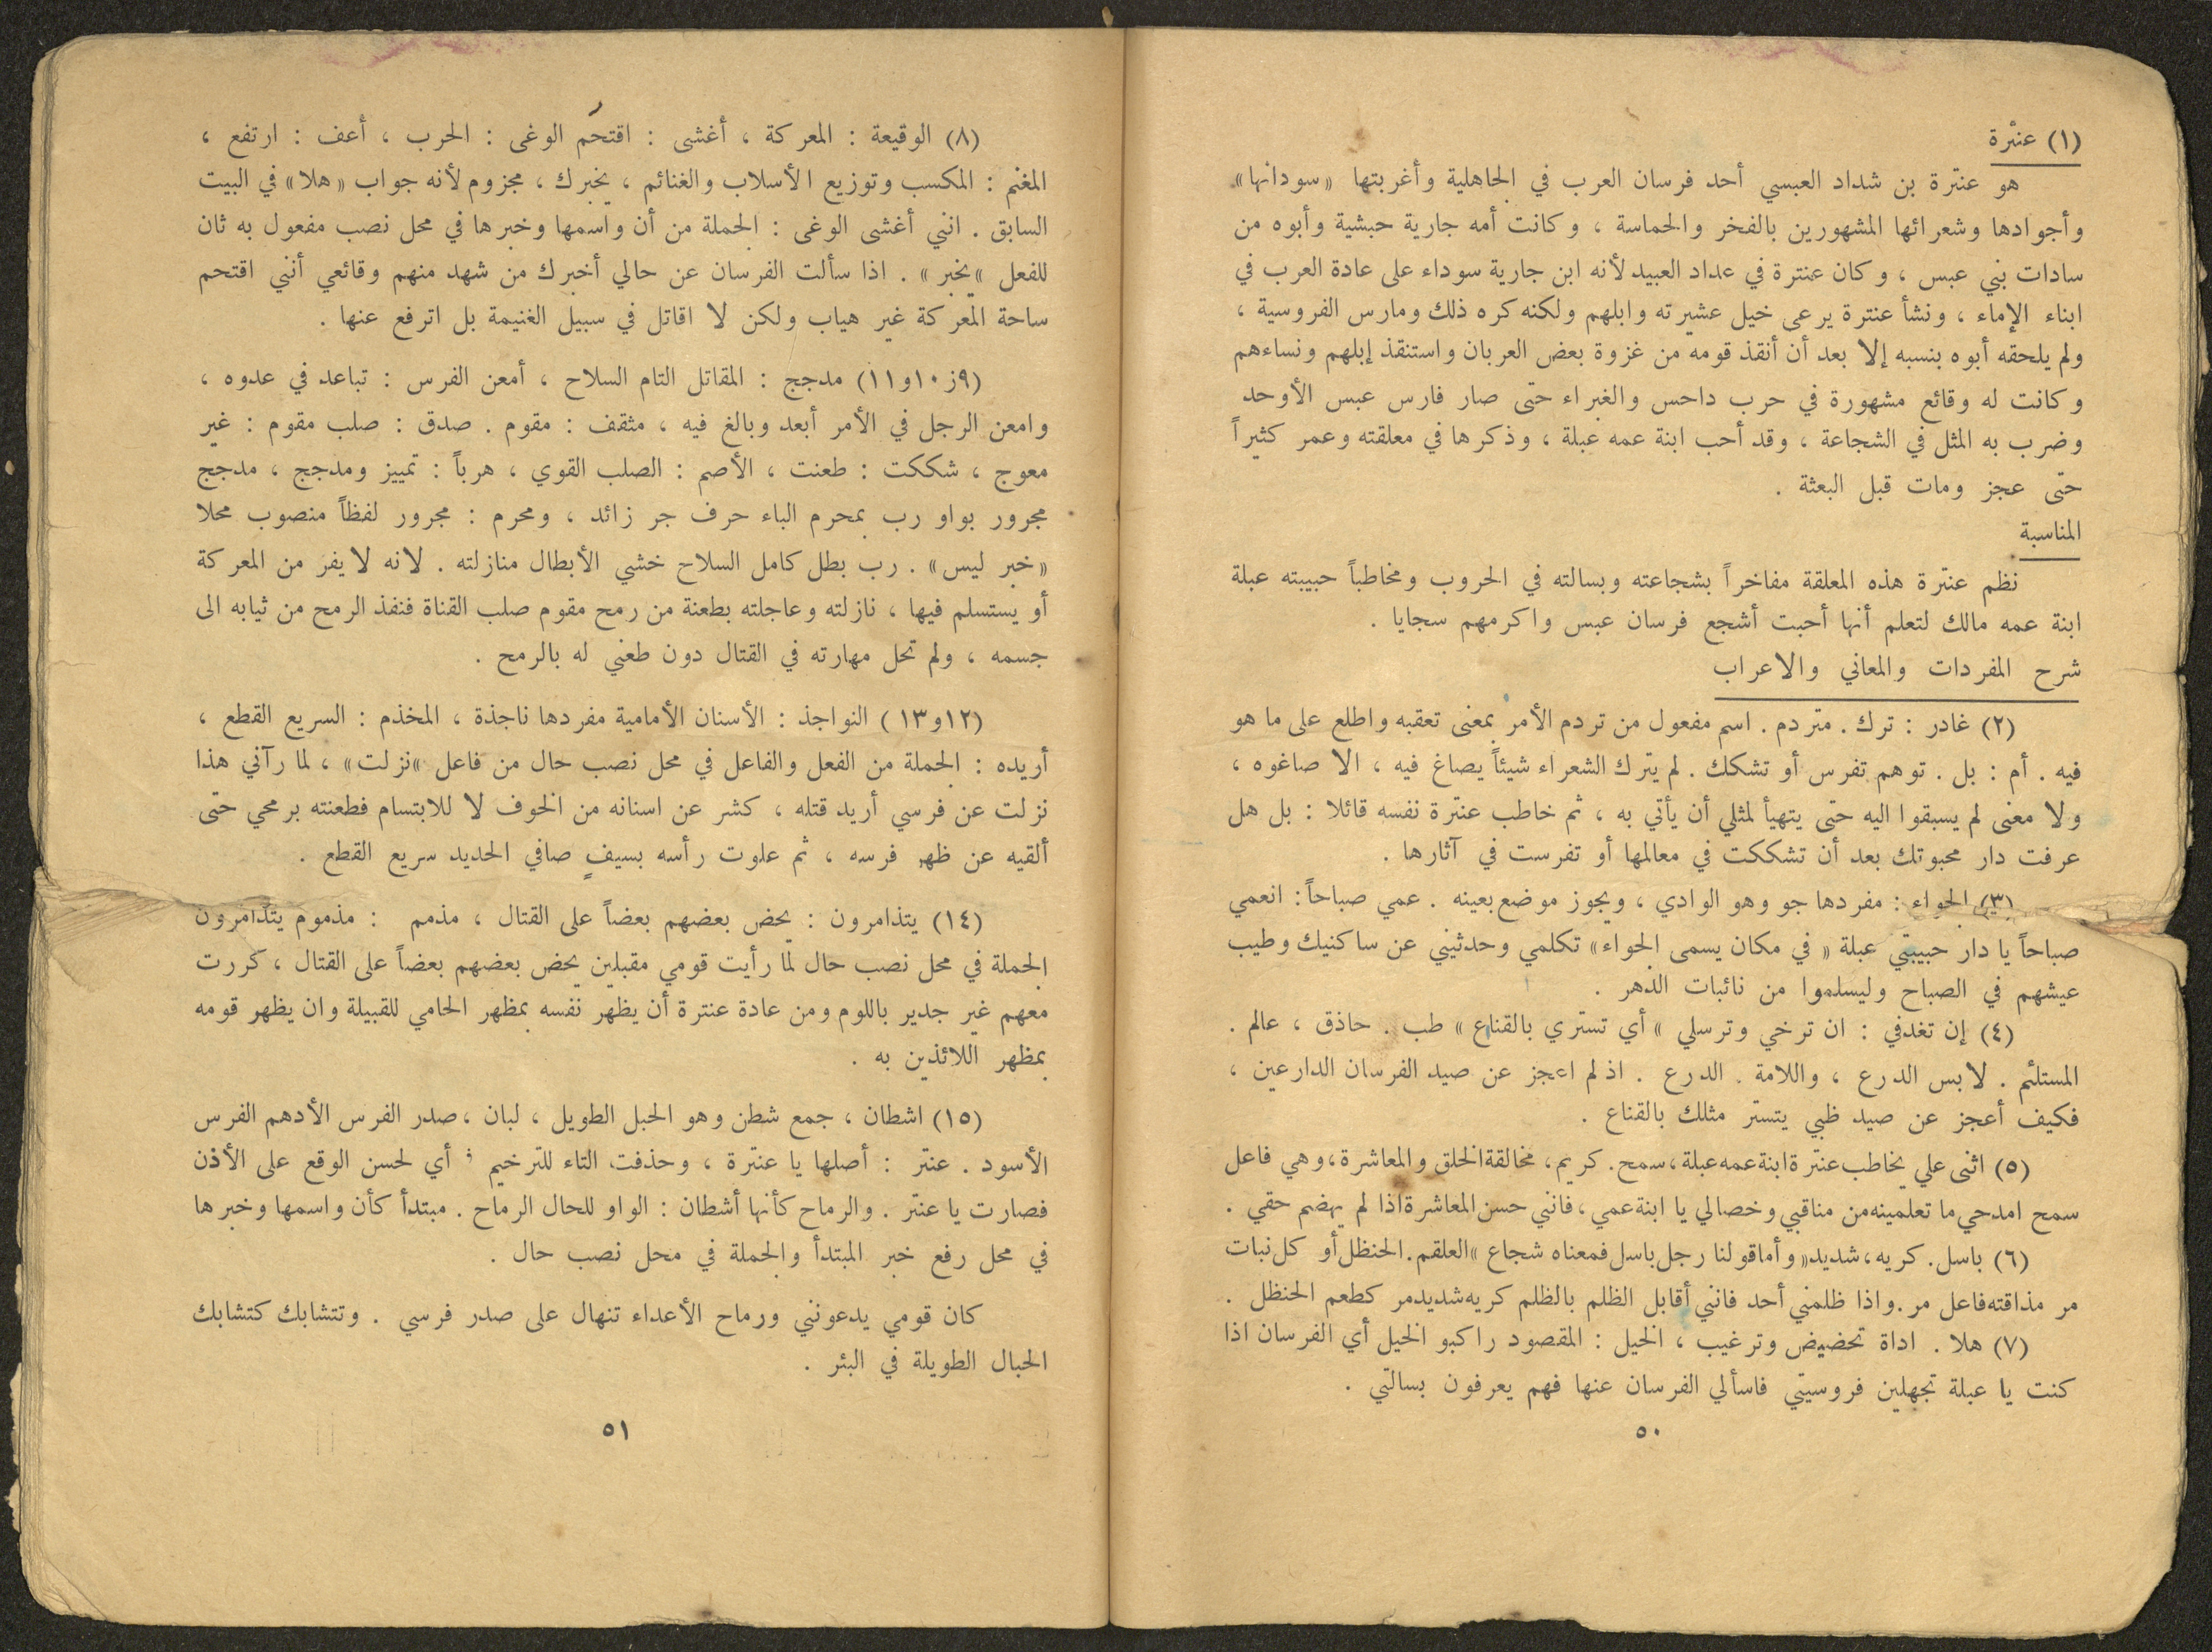 (١) عنترة
هو عنترة بن شداد العبسي أحد فرسان العرب في الجاهلية وأغربتها «سودانها»
وأجوادها وشعرائها المشهورين بالفخر والحماسة ، وكانت أمه جارية حبشية وأبوه من
سادات بني عبس ، وكان عنترة في عداد العبيد لأنه ابن جارية سوداء على عادة العرب في
ابناء الإماء ، ونشأ عنترة يرعى خيل عشيرته وابلهم ولكنه كره ذلك ومارس الفروسية ،
ولم يلحقه أبوه بنسبه إلا بعد أن أنقذ قومه من غزوة بعض العربان واستنقذ إبلهم ونساءهم
وكانت له وقائع مشهورة في حرب داحس والغبراء حتى صار فارس عبس الأوحد
وضرب به المثل في الشجاعة ، وقد أحب ابنة عمه عبلة ، وذكرها في معلقته وعمر كثيراً
حتى عجز ومات قبل البعثة .
المناسبة
نظم عنترة هذه المعلقة مفاخراً بشجاعته وبسالته في الحروب ومخاطباً حبيبته عبلة
ابنة عمه مالك لتعلم أنها أحبت أشجع فرسان عبس واكرمهم سجايا .
شرح المفردات والمعاني والاعراب
(٢) غادر : ترك . متردم . اسم مفعول من تردم الأمر بمعنى تعقبه واطلع على ما هو
فيه . أم : بل . توهم تفرس أو تشكك . لم يترك الشعراء شيئاً يصاغ فيه ، الا صاغوه ،
ولا معنى لم يسبقوا اليه حتى يتهيأ لمثلي أن يأتي به ، ثم خاطب عنترة نفسه قائلا : بل هل
عرفت دار محبوتك بعد أن تشككت في معالمها أو تفرست في آثارها .
(٣) الجواء : مفردها جو وهو الوادي ، ويجوز موضع بعينه . عمي صباحاً : انعمي
صباحاً يا دار حبيبتي عبلة « في مكان يسمى الجواء» تكلمي وحدثيني عن ساكنيك وطيب
عيشهم في الصباح وليسلموا من نائبات الدهر .
(٤) إن تغدفي : ان ترخي وترسلي » أي تستري بالقناع » طب . حاذق ، عالم .
المستلئم . لابس الدرع ، واللامة . الدرع . اذ لم اعجز عن صيد الفرسان الدارعين ،
فكيف أعجز عن صيد ظبي يتستر مثلك بالقناع .
(٥) اثنى علي يخاطب عنترة ابنة عمه عبلة ، سمح . كريم ، مخالقة الخلق والمعاشرة ، وهي فاعل
سمح امدحي ما تعلمينه من مناقبي وخصالي يا ابنة عمي ، فانني حسن المعاشرة اذا لم يهضم حقي .
(٦) باسل . كريه ، شديد «وأما قولنا رجل باسل فمعناه شجاع » العلقم . الحنظل أو كل نبات
مر مذاقته فاعل مر . واذا ظلمني أحد فانني أقابل الظلم بالظلم كريه شديد مر كطعم الحنظل .
(٧) هلا . اداة تحضيض وترغيب ، الخيل : المقصود راكبو الخيل أي الفرسان اذا
كنت يا عبلة تجهلين فروسيتي فاسألي الفرسان عنها فهم يعرفون بسالتي .
٥٠
(٨) الوقيعة : المعركة ، أغشى : اقتحم الوغى : الحرب ، أعف : ارتفع ،
المغنم : المكسب وتوزيع الأسلاب والغنائم ، يخبرك ، مجزوم لأنه جواب «هلا» في البيت
السابق . انني أغشى الوغى : الجملة من أن واسمها وخبرها في محل نصب مفعول به ثان
للفعل »يخبر» . اذا سألت الفرسان عن حالي أخبرك من شهد منهم وقائعي أنني اقتحم
ساحة المعركة غير هياب ولكن لا اقاتل في سبيل الغنيمة بل اترفع عنها .
(٩ز١٠و١١) مدجج : المقاتل التام السلاح ، أمعن الفرس : تباعد في عدوه ،
وامعن الرجل في الأمر أبعد وبالغ فيه ، مثقف : مقوم . صدق : صلب مقوم : غير
معوج ، شككت : طعنت ، الأصم : الصلب القوي ، هرباً : تمييز ومدجج ، مدجج
مجرور بواو رب بمحرم الباء حرف جر زائد ، ومحرم : مجرور لفظاً منصوب محلا
«خبر ليس» . رب بطل كامل السلاح خشي الأبطال منازلته . لانه لا يفر من المعركة
أو يستسلم فيها ، نازلته وعاجلته بطعنة من رمح مقوم صلب القناة فنفذ الرمح من ثيابه الى
جسمه ، ولم تحل مهارته في القتال دون طعني له بالرمح .
(١٢و١٣ ) النواجذ : الأسنان الأمامية مفردها ناجذة ، المخذم : السريع القطع ،
أريده : الجملة من الفعل والفاعل في محل نصب حال من فاعل »نزلت» ، لما رآني هذا
نزلت عن فرسي أريد قتله ، كشر عن اسنانه من الخوف لا للابتسام فطعنته برمحي حتى
ألقيه عن ظهر فرسه ، ثم علوت رأسه بسيفٍ صافي الحديد سريع القطع .
(١٤) يتذامرون : يحض بعضهم بعضاً على القتال ، مذمم : مذموم يتذامرون
الجملة في محل نصب حال لما رأيت قومي مقبلين يحض بعضهم بعضاً على القتال ، كررت
معهم غير جدير باللوم ومن عادة عنترة أن يظهر نفسه بمظهر الحامي للقبيلة وان يظهر قومه
بمظهر اللائذين به .
(١٥) اشطان ، جمع شطن وهو الحبل الطويل ، لبان ، صدر الفرس الأدهم الفرس
الأسود . عنتر : أصلها يا عنترة ، وحذفت التاء للترخيم ، أي لحسن الوقع على الأذن
فصارت يا عنتر . والرماح كأنها أشطان : الواو للحال الرماح . مبتدأ كأن واسمها وخبرها
في محل رفع خبر المبتدأ والجملة في محل نصب حال .
كان قومي يدعونني ورماح الأعداء تنهال على صدر فرسي . وتتشابك كتشابك
الحبال الطويلة في البئر .
٥١